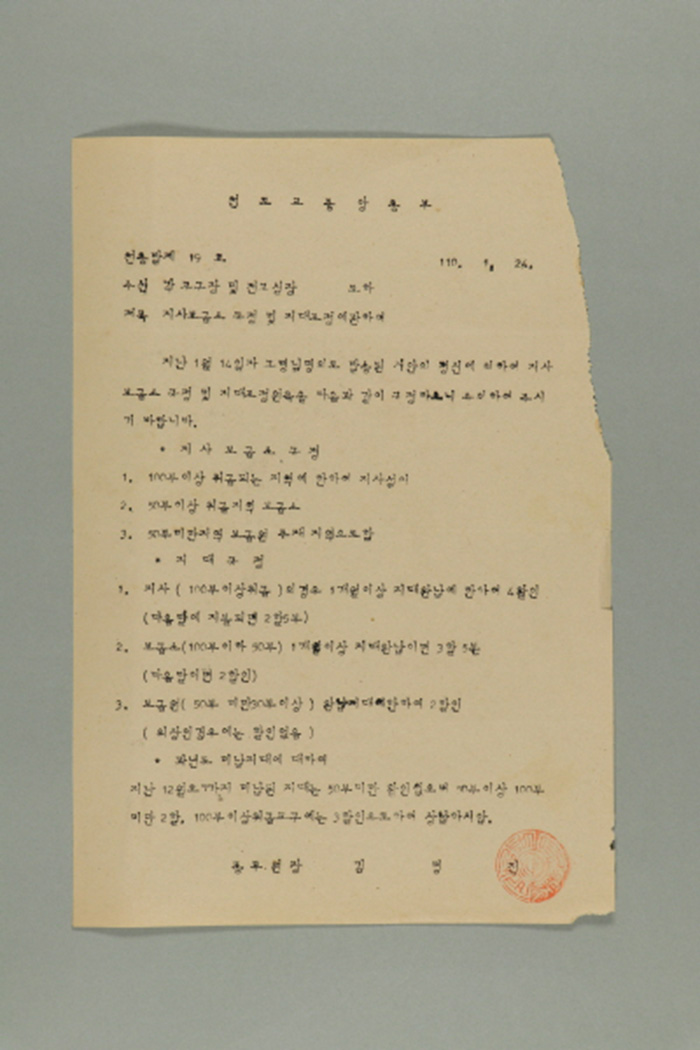 천도교중앙총부
천총발제 19 호 110. 1. 24.
수신 각 교구장 및 전교실장 모하
제목 지사보급소 규정 및 지대규정에관하여
지난 1월 14일자 교령님명의로 발송된 서한의 정신에 의하여 지사
보급소 규정 및 지대규정원육을 다음과 같이 규정하오니 조회하여 주시
기 바랍니다.
* 지사 보급소 규정
1. 100부이상 취급되는 지역에 한하여 지사설치
2. 50부이상 취급지역 보급소
3. 50부미만지역 보급원 주재 지역으로함
* 지대규정
1. 지사 ( 100부이상취급 )의경우 1개월이상 지대완납에 한하여 4할인
(다음달에 지불되면 2할5부)
2. 보급소(100부이하 50부) 1개월이상 지대완납이면 3할 5분
(다음달이면 2할인)
3. 보급원( 50부 미만30부이상 ) 완납지대에한하여 2할인
( 외상인경우에는 할인없음 )
* 과년도 미납지대에 대하여
지난 12월호까지 미납된 지대는 50부미만 할인없으며 50부이상 100부
미만 2할, 100부이상취급교구에는 3할인으로하여 상납하시압.
종무원장 김 명 진